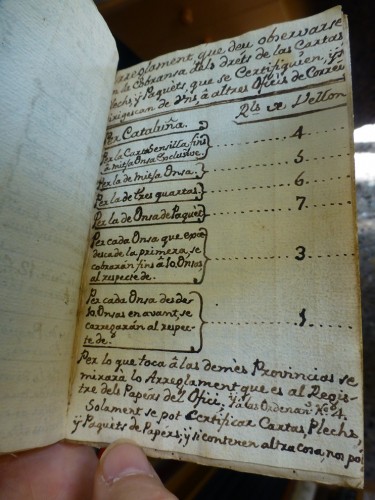 Arreglament que deu observarse
en la Cobransa dels dréts de las Cartas
Plechs, ÿ Paquets, que se Certifiquien, ÿ
dirigescan de uns, â altres Oficis de Correu
Rls. de Vellon
Per Cataluña.
Per la Carta Sensilla fins
â mitja Onsa Exclusive. 4
Per la de mitja Onsa. 5
Per la de tres quartas. 6
Per la de Onsa de Paquet 7
Per cada Onsa que exce-
desca de la primera, se
cobrarán fins â 10. Onsas
al respecte de. 3
Per cada Onsa des de
10. Onsas en avant, se
carregarán al respec-
te de. 1
Per lo que toca â las demès Provincias se
mirarà lo Arreglament que es al Regis-
tre dels Papers del Ofici, ÿ â las Ordenans. No. 4.
Solament se pot Certificar Cartas, Plechs,
ÿ Paquets de Papers, ÿ si contenen altra cosa, no po